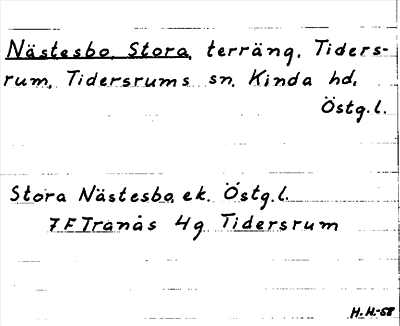 Nästesbo, Stora, terräng, Tiders-
rum, Tidersrums sn, Kinda hd,
Östg.l.
Stora Nästesbo, ek. Östg.l.
7F Tranås 4g Tidersrum
H.H.-58